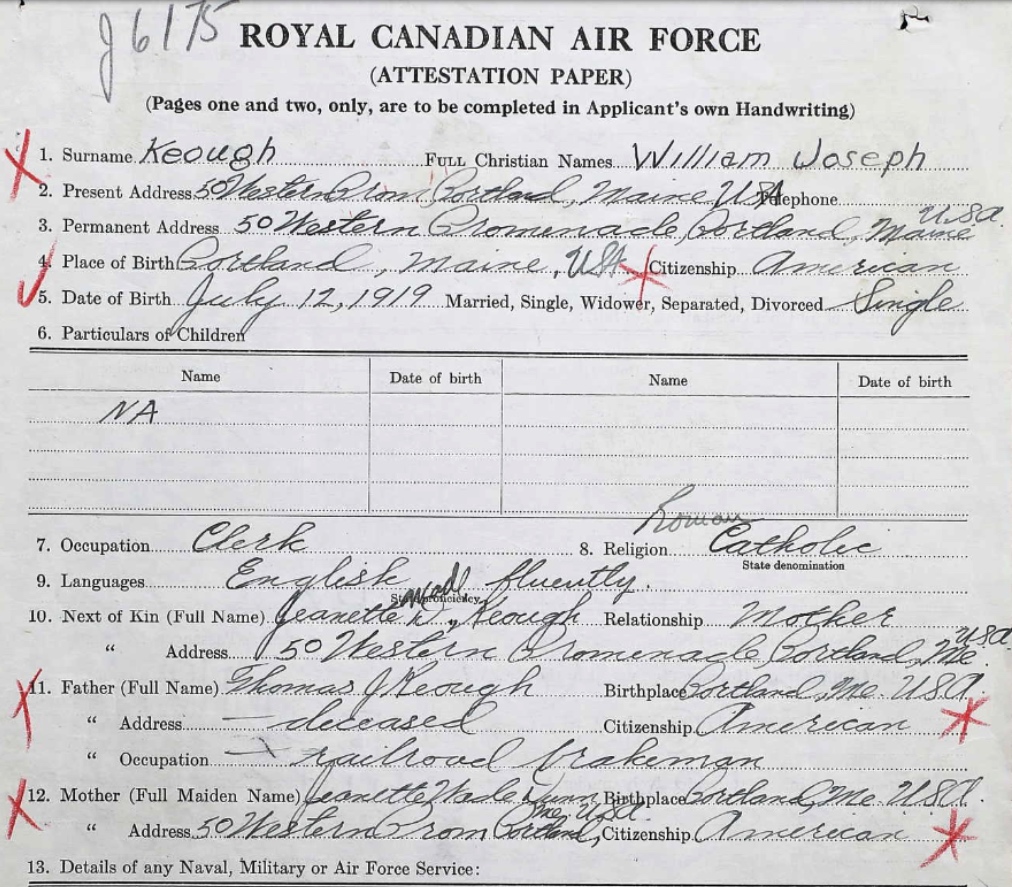 J 6175
ROYAL CANADIAN AIR FORCE
(ATTESTATION PAPER)
(Pages one and two, only, are to be completed in Applicant's own Handwriting)
1. Surname Keough FULL Christian Names William Joseph
2. Present Address 50 Western Prom Portland, Maine, USA Telephone
USA.
3. Permanent Address 50 Western Promenade, Portland, Maine
4. Place of Birth Portland, Maine, USA Citizenship American
5. Date of Birth July 12, 1919 Married, Single, Widower, Separated, Divorced Single
6. Particulars of Children
Name Date of birth Name Date of birth
NA
Roman
7. Occupation Clerk 8. Religion Catholic
State denomination
9. Languages English fluently.
10. Next of Kin (Full Name) Jeanette Keough Relationship Mother
USA.
" Address 50 Western Promenade, Portland, Me.
11. Father (Full Name) Thomas J. Keough Birthplace Portland, Me. U.S.A.
" Address — deceased Citizenship American
" Occupation — railroad brakeman
12. Mother (Full Maiden Name) Jeanette Wade Birthplace Portland, Me. U.S.A.
Me. U.S.A.
" Address 50 Western Prom Portland, Citizenship American
13. Details of any Naval, Military or Air Force Service: